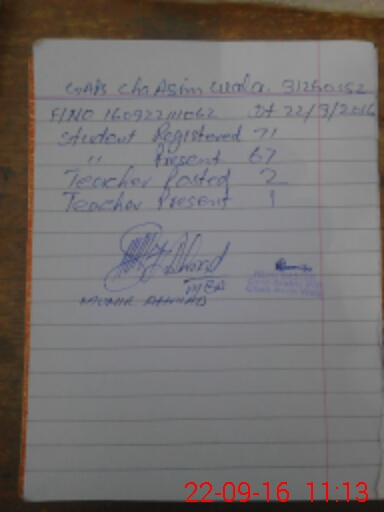 GABPS Cha Asim wala. 31250152
F/NO 160922111062 Dt 22/9/2016
Student Registered 71
" Present 67
Teacher Posted 2
Teacher Present 1
MEA
MUNIR AHMAD
22-09-16 11:13